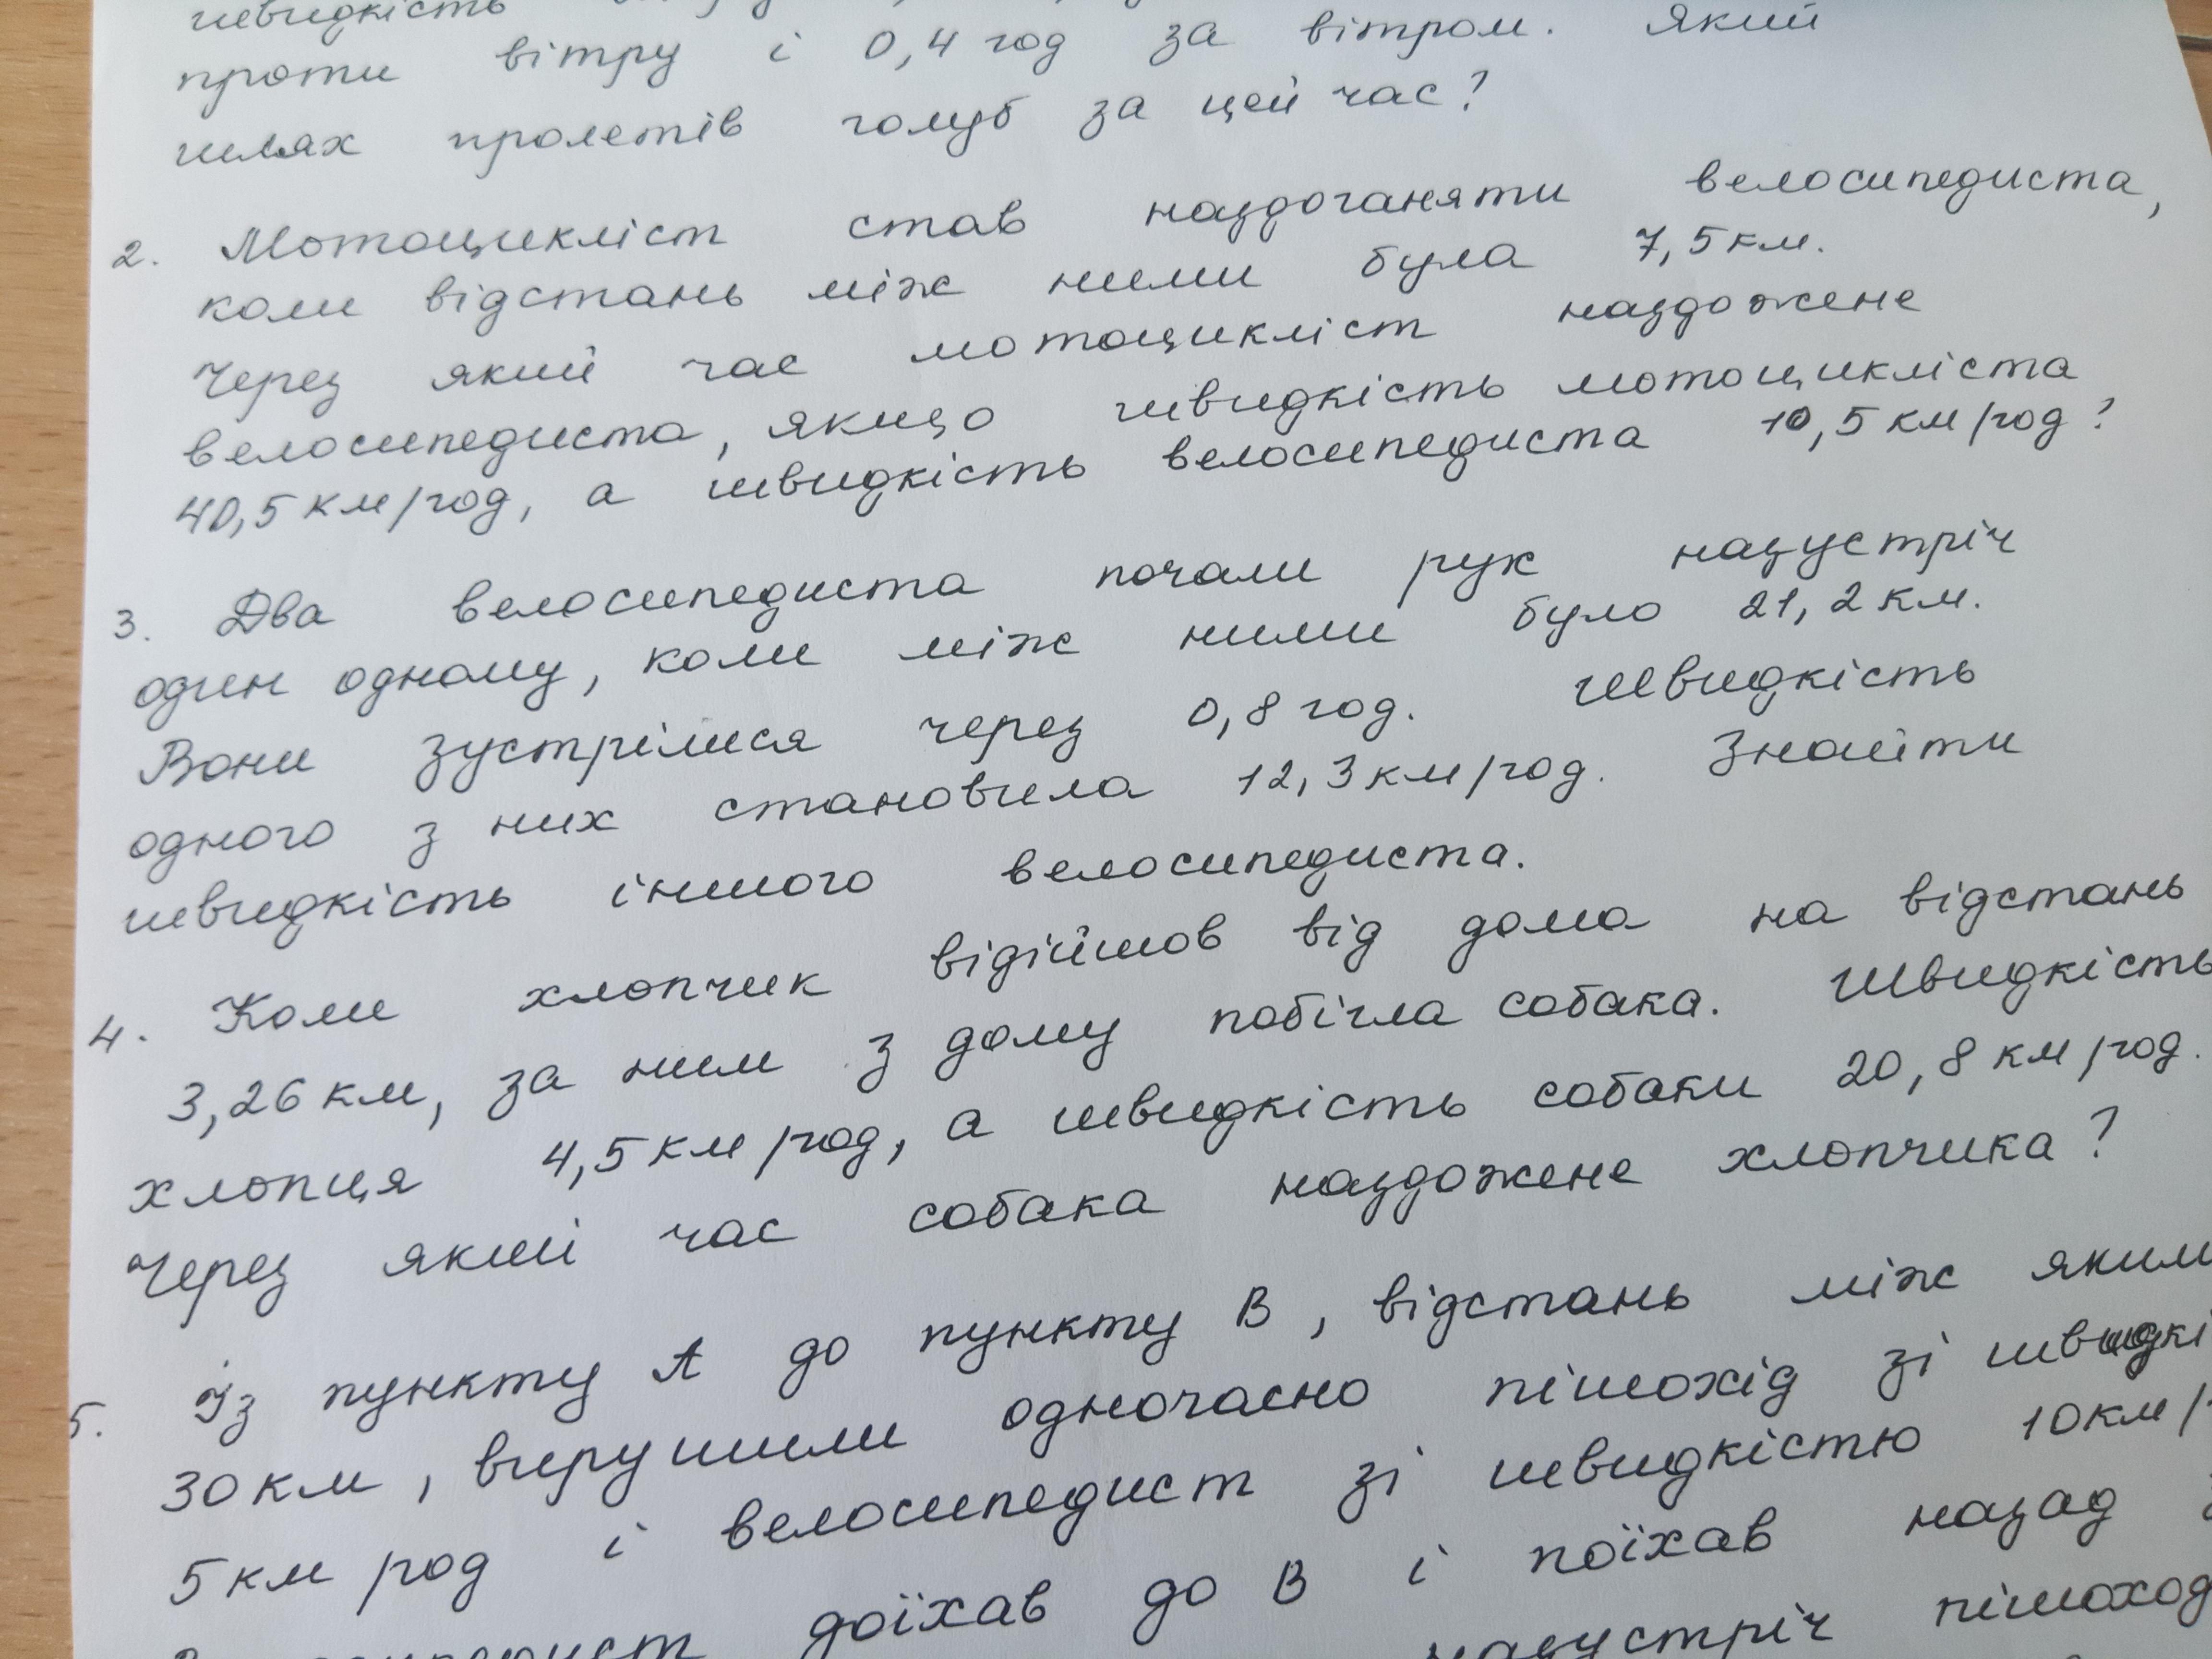 швидкість
проти вітру і 0,4 год за вітром. Який
шлях пролетів голуб за цей час?
2. Мотоцикліст став наздоганяти велосипедиста,
коли відстань між ними була 7,5 км.
Через який час мотоцикліст наздожене
велосипедиста, якщо швидкість мотоцикліста
40,5 км/год, а швидкість велосипедиста 10,5 км/год?
3. Два велосипедиста почали рух назустріч
один одному, коли між ними було 21,2 км.
Вони зустрілися через 0,8 год. Швидкість
одного з них становила 12,3 км/год. Знайти
швидкість іншого велосипедиста.
4. Коли хлопчик відійшов від дома на відстань
3,26 км, за ним з дому побігла собака. Швидкість
хлопця 4,5 км/год, а швидкість собаки 20,8 км/год.
Через який час собака наздожене хлопчика?
5. Із пункту А до пункту В, відстань між яким
30 км, вирушили одночасно пішохід зі швидкі
5 км/год і велосипедист зі швидкістю 10 км/
доїхав до В і поїхав назад
назустріч пішоход